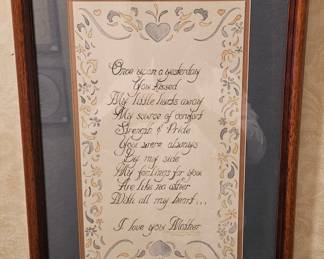 Once upon a yesterday
You kissed
My little hurts away
My source of comfort
Strength & Pride
You were always
By my side
My feelings for you
Are like no other
With all my heart...
I love you Mother